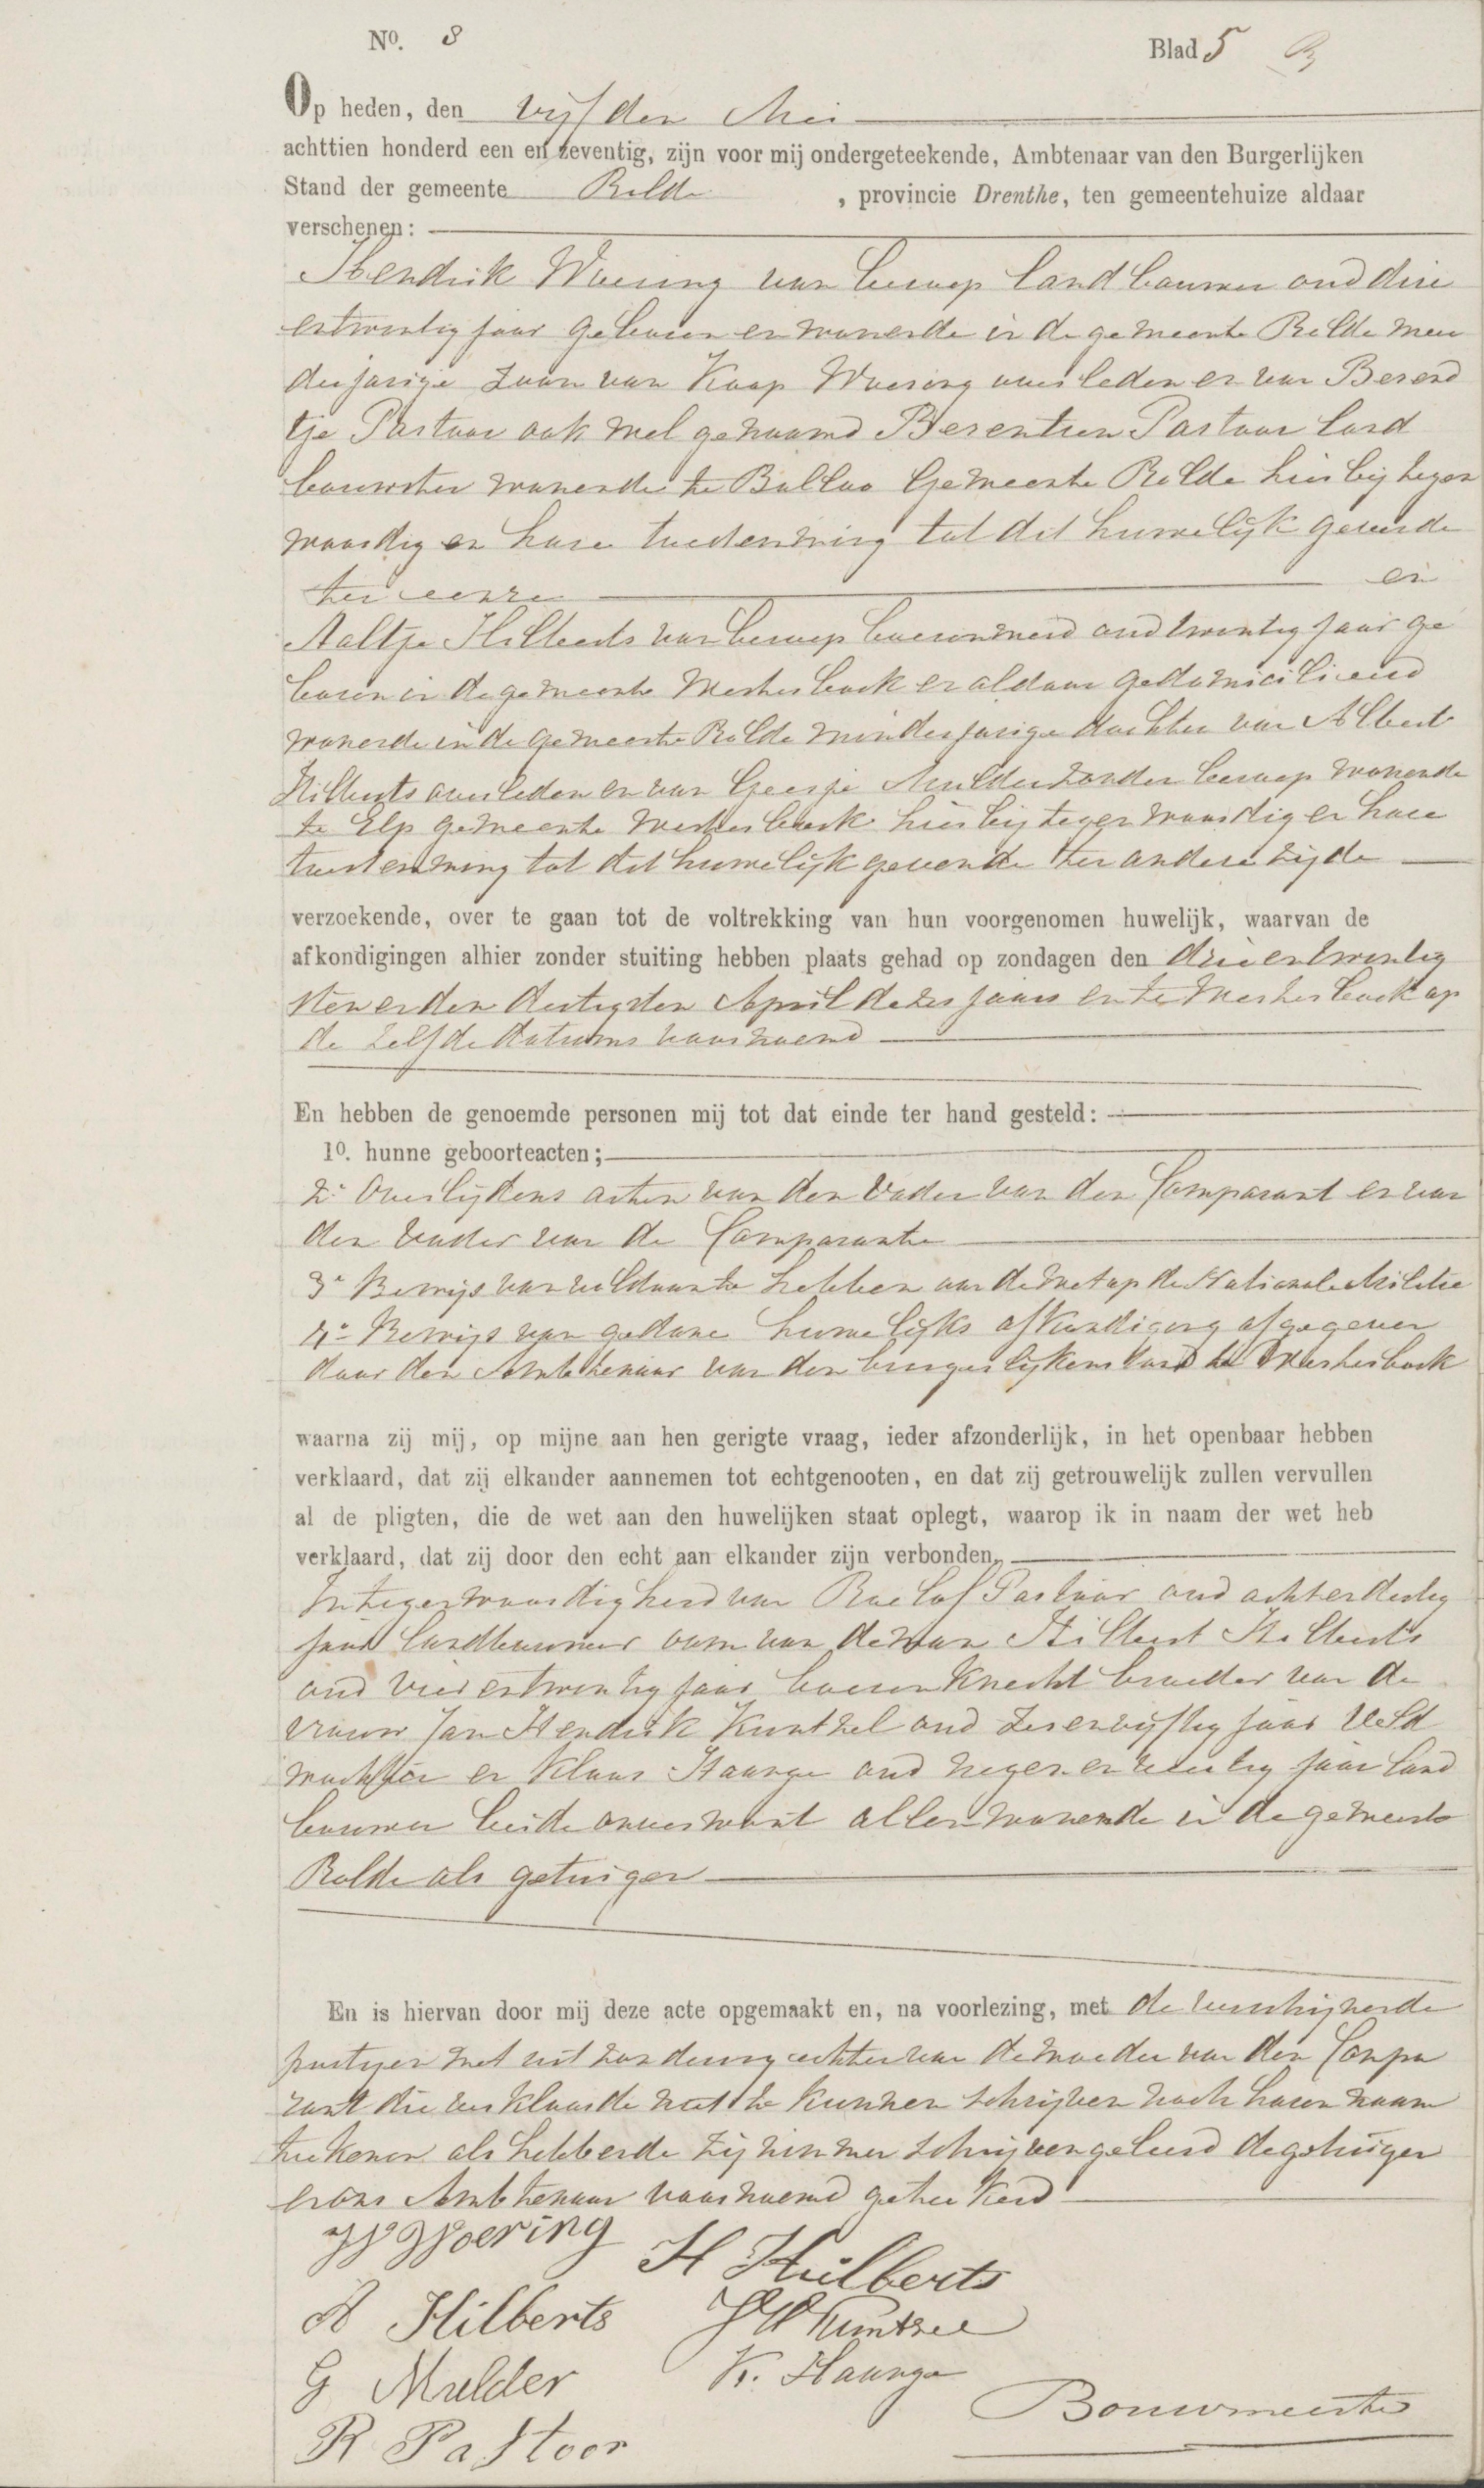 No. 8 Blad 5
Op heden, den vijfden Mei
achttien honderd een en zeventig, zijn voor mij ondergeteekende, Ambtenaar van den Burgerlijken
Stand der gemeente Rolde , provincie Drenthe, ten gemeentehuize aldaar
verschenen:
Hendrik Woering van beroep landbouwer oud drie
entwintig jaar geboren en wonende in de gemeente Rolde min
derjarige zoon van Koop Woering overleden en van Berend
tje Pastoor ook wel genaamd Berentien Pastoor land
bouwster wonende te Balloo Gemeente Rolde hierbij tegen
woordig en hare toestemming tot dit huwelijk gevende
ter eenre en
Aaltje Hilberts van beroep boerenmeid oud twintig jaar ge
boren in de gemeente Westerbork en aldaar gedomicilieerd
wonende in de gemeente Rolde minderjarige dochter van Albert
Hilberts overleden en van Geesje Mulder zonder beroep wonende
te Elp gemeente Westerbork hierbij tegenwoordig en hare
toestemming tot dit huwelijk gevende ter andere zijde
verzoekende, over te gaan tot de voltrekking van hun voorgenomen huwelijk, waarvan de
afkondigingen alhier zonder stuiting hebben plaats gehad op zondagen den drieentwintig
sten en den dertigsten April dezes jaars en te Westerbork op
de zelfde datums voornoemd
En hebben de genoemde personen mij tot dat einde ter hand gesteld:
1o. hunne geboorteacten;
2o Overlijdens acten van den Vader van den Comparant en van
den vader van de Comparante
3o Bewijs van voldaan te hebben aan de wet op de Nationale Militie
4o Bewijs van gedane huwelijks afkondiging afgegeven
door den Ambtenaar van den burgerlijken stand te Westerbork
waarna zij mij, op mijne aan hen gerigte vraag, ieder afzonderlijk, in het openbaar hebben
verklaard, dat zij elkander aannemen tot echtgenooten, en dat zij getrouwelijk zullen vervullen
al de pligten, die de wet aan den huwelijken staat oplegt, waarop ik in naam der wet heb
verklaard, dat zij door den echt aan elkander zijn verbonden,
In tegenwoordigheid van Roelof Pastoor oud achtendertig
jaar landbouwer oom van de man Hilbert Hilberts
oud vierentwintig jaar boerenknecht broeder van de
vrouw Jan Hendrik Kuntzel oud zesenvijftig jaar Veld
wachter en Klaas Haange oud negenenveertig jaar land
bouwer beide onverwant allen wonende in de gemeente
Rolde als getuigen
En is hiervan door mij deze acte opgemaakt en, na voorlezing, met de verschijnende
partijen met uitzondering echter van de moeder van den Compa
rant die verklaarde niet te kunnen schrijven noch haren naam
teekenen als hebbende zij nimmer schrijven geleerd de getuigen
en ons Ambtenaar voornoemd geteekend
H Woering
H Hilberts
A Hilberts
JH Kuntzel
G Mulder
K. Haange
Bouwmeester
R Pastoor